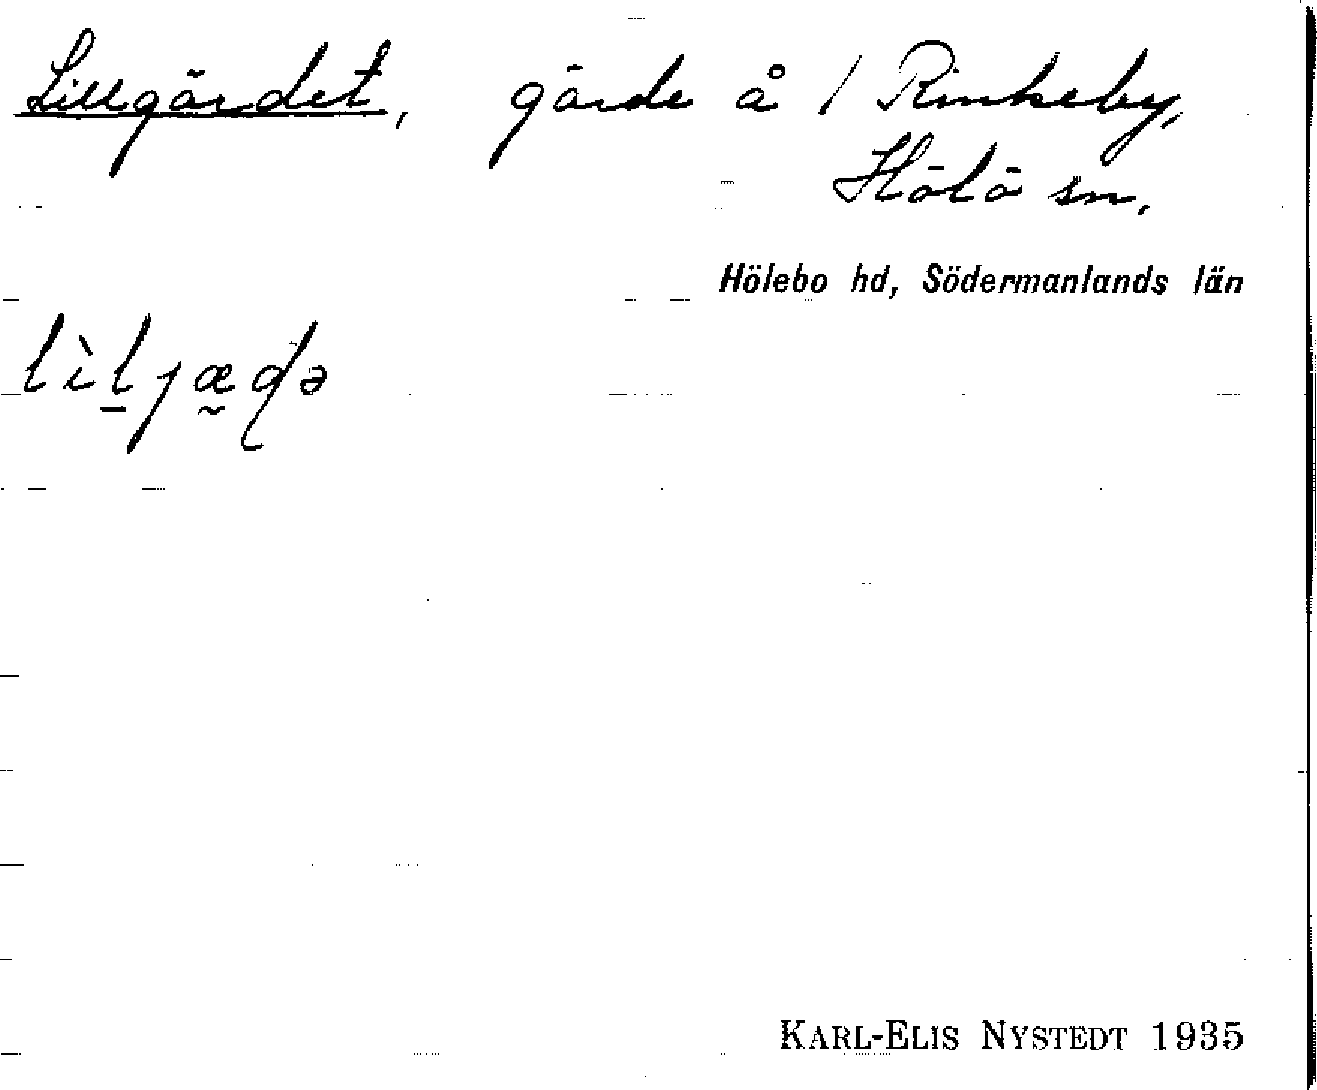 Lillgärdet, gärde å / Rinkeby,
Hölö sn.
Hölebo hd, Södermanlands län
lìl̠jæ̰ɖə
KARL-ELIS NYSTEDT 1935